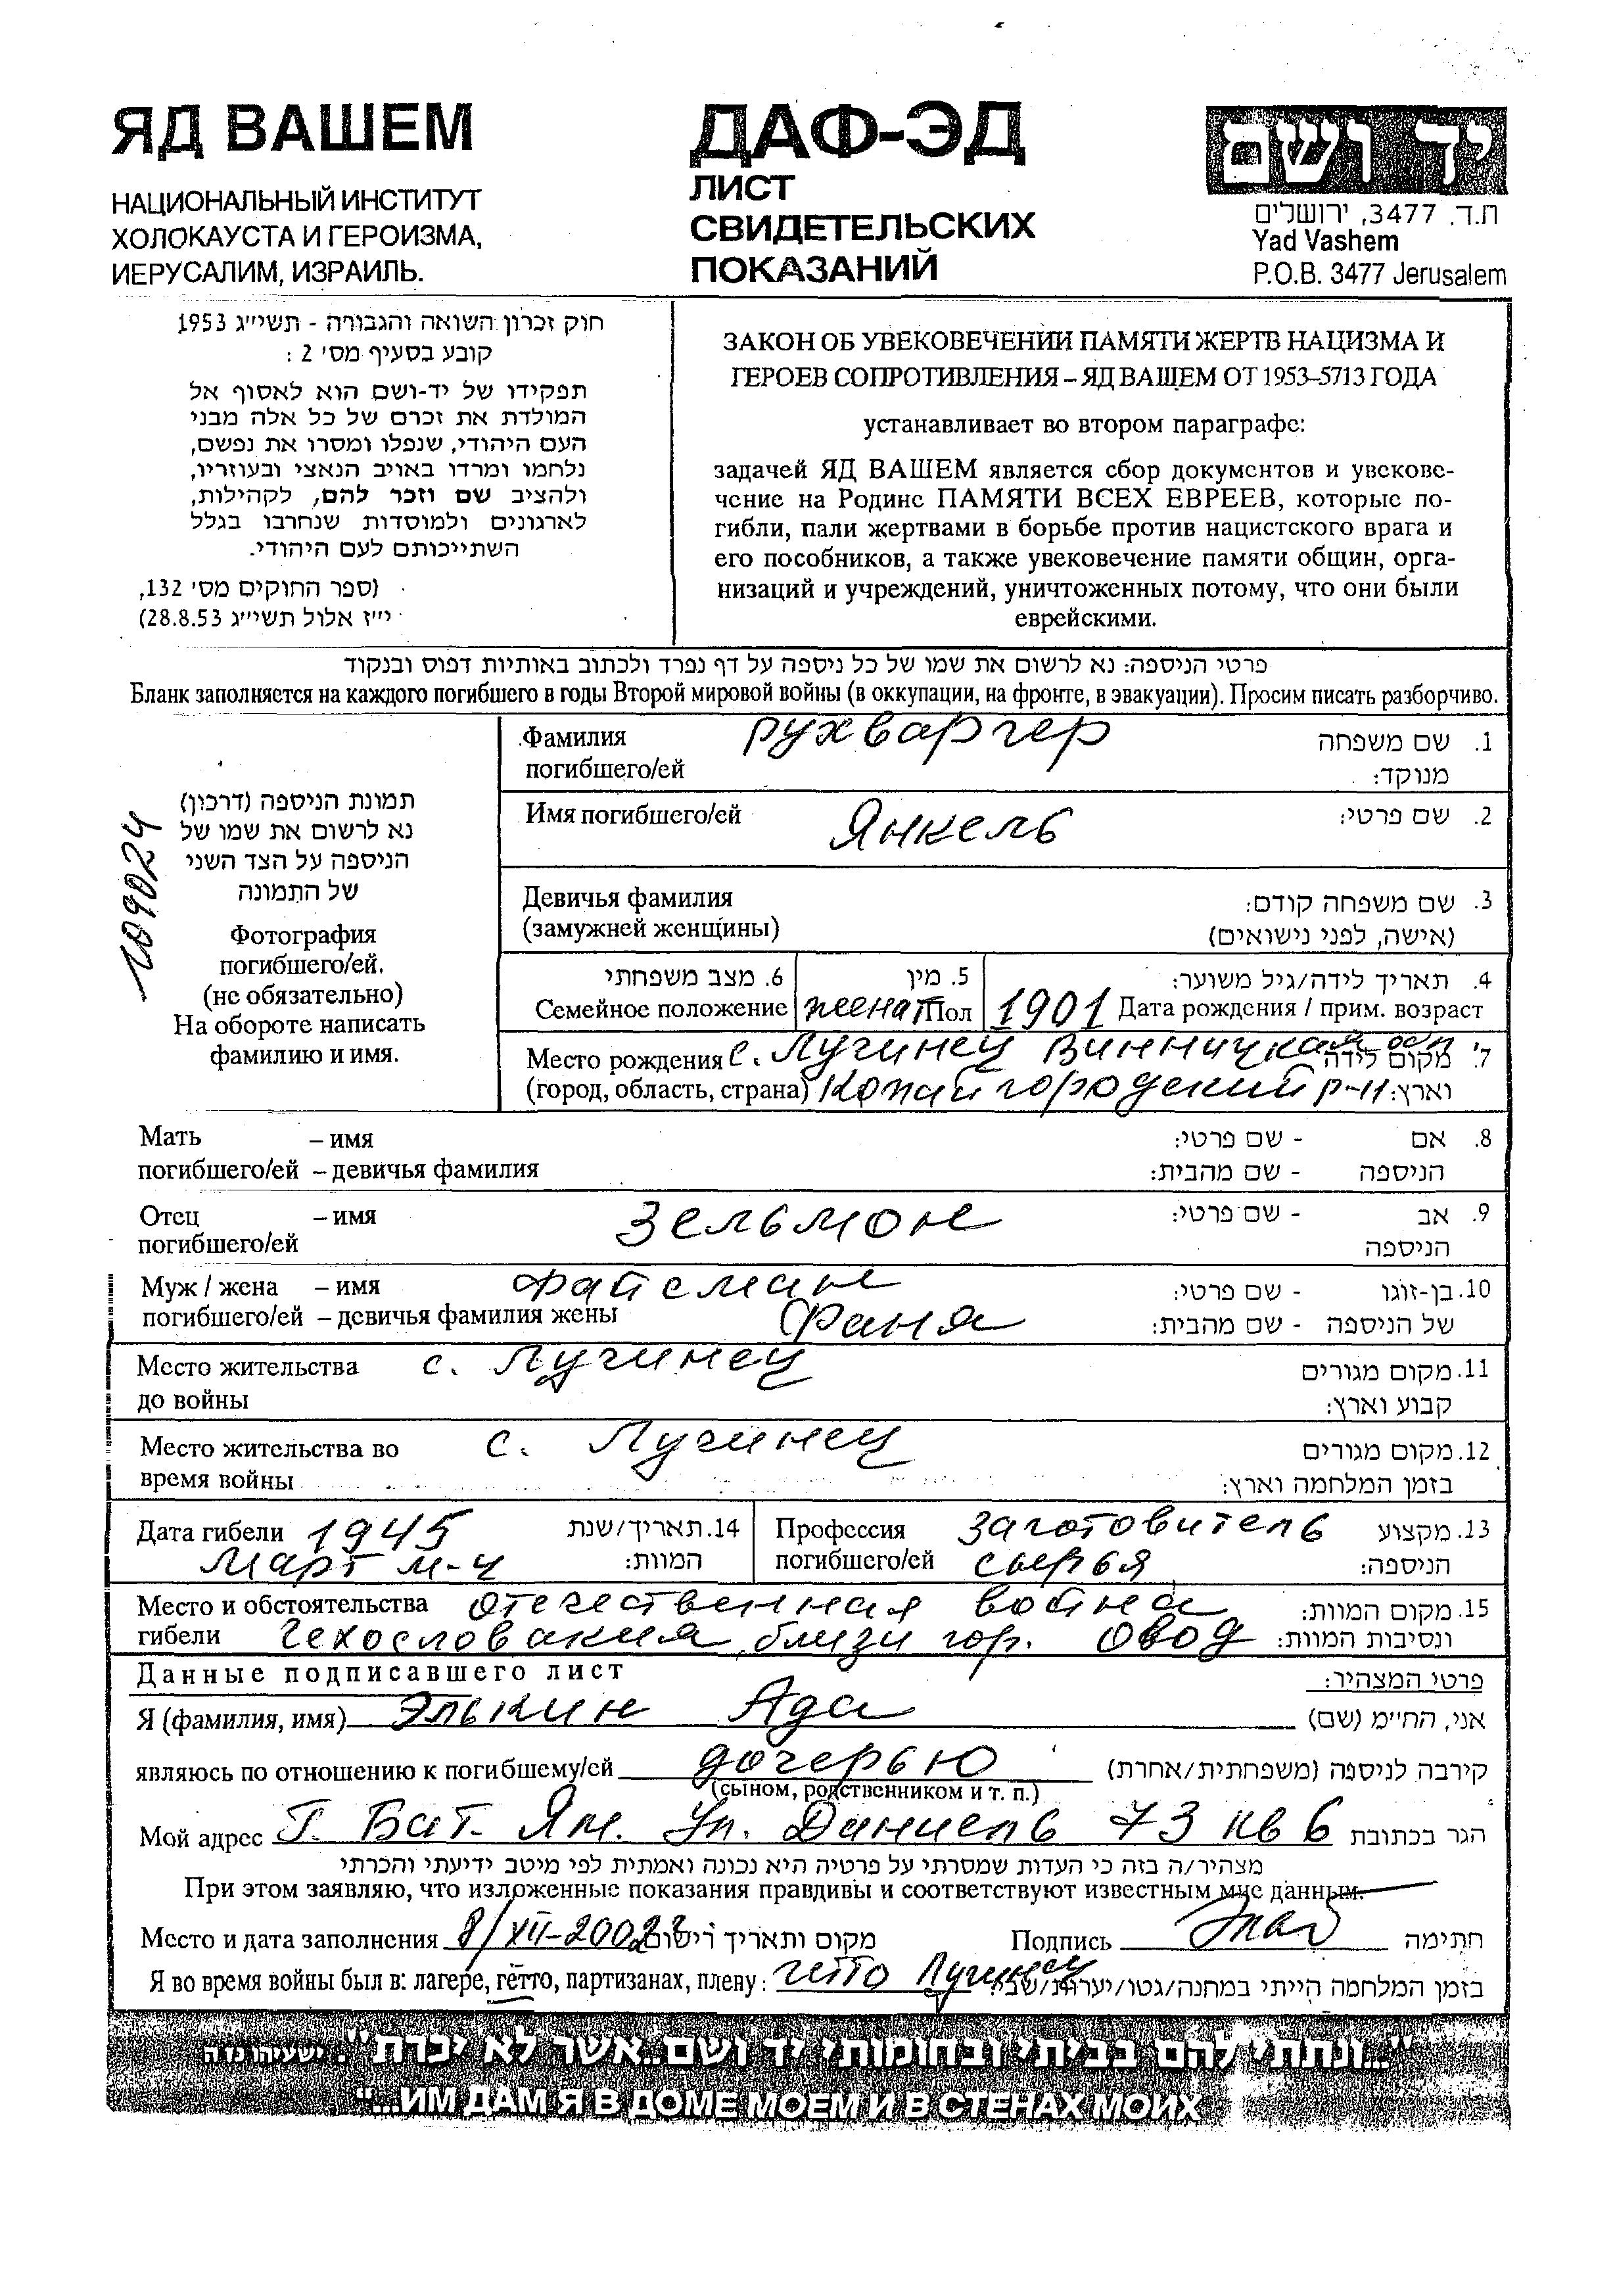 ЯД ВАШЕМ
НАЦИОНАЛЬНЫЙ ИНСТИТУТ
ХОЛОКАУСТА И ГЕРОИЗМА,
ИЕРУСАЛИМ, ИЗРАИЛЬ.
ДАФ-ЭД
ЛИСТ
СВИДЕТЕЛЬСКИХ
ПОКАЗАНИЙ
יד ושם
ת.ד. 3477, ירושלים
Yad Vashem
P.O.B. 3477 Jerusalem
חוק זכרון השואה והגבורה - תשי״ג 1953
קובע בסעיף מס׳ 2 :
תפקידו של יד-ושם הוא לאסוף אל
המולדת את זכרם של כל אלה מבני
העם היהודי, שנפלו ומסרו את נפשם,
נלחמו ומרדו באויב הנאצי ובעוזריו,
ולהציב שם וזכר להם, לקהילות,
לארגונים ולמוסדות שנחרבו בגלל
השתייכותם לעם היהודי.
(ספר החוקים מס׳ 132,
י״ז אלול תשי״ג 28.8.53)
ЗАКОН ОБ УВЕКОВЕЧЕНИИ ПАМЯТИ ЖЕРТВ НАЦИЗМА И
ГЕРОЕВ СОПРОТИВЛЕНИЯ – ЯД ВАШЕМ ОТ 1953–5713 ГОДА
устанавливает во втором параграфе:
задачей ЯД ВАШЕМ является сбор документов и увекове-
чение на Родине ПАМЯТИ ВСЕХ ЕВРЕЕВ, которые по-
гибли, пали жертвами в борьбе против нацистского врага и
его пособников, а также увековечение памяти общин, орга-
низаций и учреждений, уничтоженных потому, что они были
еврейскими.
פרטי הניספה: נא לרשום את שמו של כל ניספה על דף נפרד ולכתוב באותיות דפוס ובנקוד
Бланк заполняется на каждого погибшего в годы Второй мировой войны (в оккупации, на фронте, в эвакуации). Просим писать разборчиво.
109024
תמונת הניספה (דרכון)
נא לרשום את שמו של
הניספה על הצד השני
של התמונה
Фотография
погибшего/ей.
(не обязательно)
На обороте написать
фамилию и имя.
Фамилия рухваргер 1. שם משפחה
погибшего/ей מנוקד:
Имя погибшего/ей Янкель 2. שם פרטי:
Девичья фамилия 3. שם משפחה קודם:
(замужней женщины) (אישה, לפני נישואים)
6. מצב משפחתי 5. מין 4. תאריך לידה/גיל משוער:
Семейное положение женат Пол 1901 Дата рождения / прим. возраст
Место рождения с. Лучинец Винницкая обл 7. מקום לידה
(город, область, страна) Копайгородский р-н וארץ:
Мать – имя 8. אם - שם פרטי:
погибшего/ей – девичья фамилия הניספה - שם מהבית:
Отец – имя Зельмон 9. אב - שם פרטי:
погибшего/ей הניספה
Муж / жена – имя Файсман 10. בן-זוגו - שם פרטי:
погибшего/ей – девичья фамилия жены Фаня של הניספה - שם מהבית:
Место жительства с. Лучинец 11. מקום מגורים
до войны קבוע וארץ:
Место жительства во с. Лучинец 12. מקום מגורים
время войны בזמן המלחמה וארץ:
Дата гибели 1945 14. תאריך/שנת
Март м-ц המוות:
Профессия заготовитель 13. מקצוע
погибшего/ей сырья הניספה:
Место и обстоятельства отечественная война 15. מקום המוות:
гибели Чехословакия, близи гор. Овод ונסיבות המוות:
Данные подписавшего лист פרטי המצהיר:
Я (фамилия, имя) Элькин Ада אני, החי״מ (שם)
являюсь по отношению к погибшему/ей дочерью קירבה לניספה (משפחתית/אחרת)
(сыном, родственником и т. п.)
Мой адрес Г. Бат. Ям. Ул. Даниель 73 кв 6 הגר בכתובת
מצהיר/ה בזה כי העדות שמסרתי על פרטיה היא נכונה ואמתית לפי מיטב ידיעתי והכרתי
При этом заявляю, что изложенные показания правдивы и соответствуют известным мне данным.
Место и дата заполнения 8/XII-2002 מקום ותאריך רישום Подпись חתימה
Я во время войны был в: лагере, гетто, партизанах, плену: гетто Лучинец בזמן המלחמה הייתי במחנה/גטו/יערות/שבי
"...ונתתי להם בביתי ובחומותי יד ושם..אשר לא יכרת". ישעיהו נו ה
"...ИМ ДАМ Я В ДОМЕ МОЕМ И В СТЕНАХ МОИХ